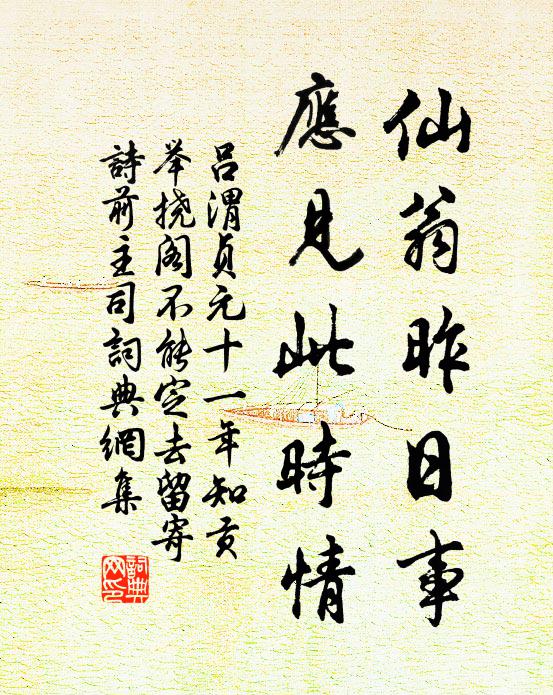 仙翁昨日事
應見此時情
吕渭貞元十一年知贡
举挠阁不能定去留寄
詩前主司詞典網集
詞典网印